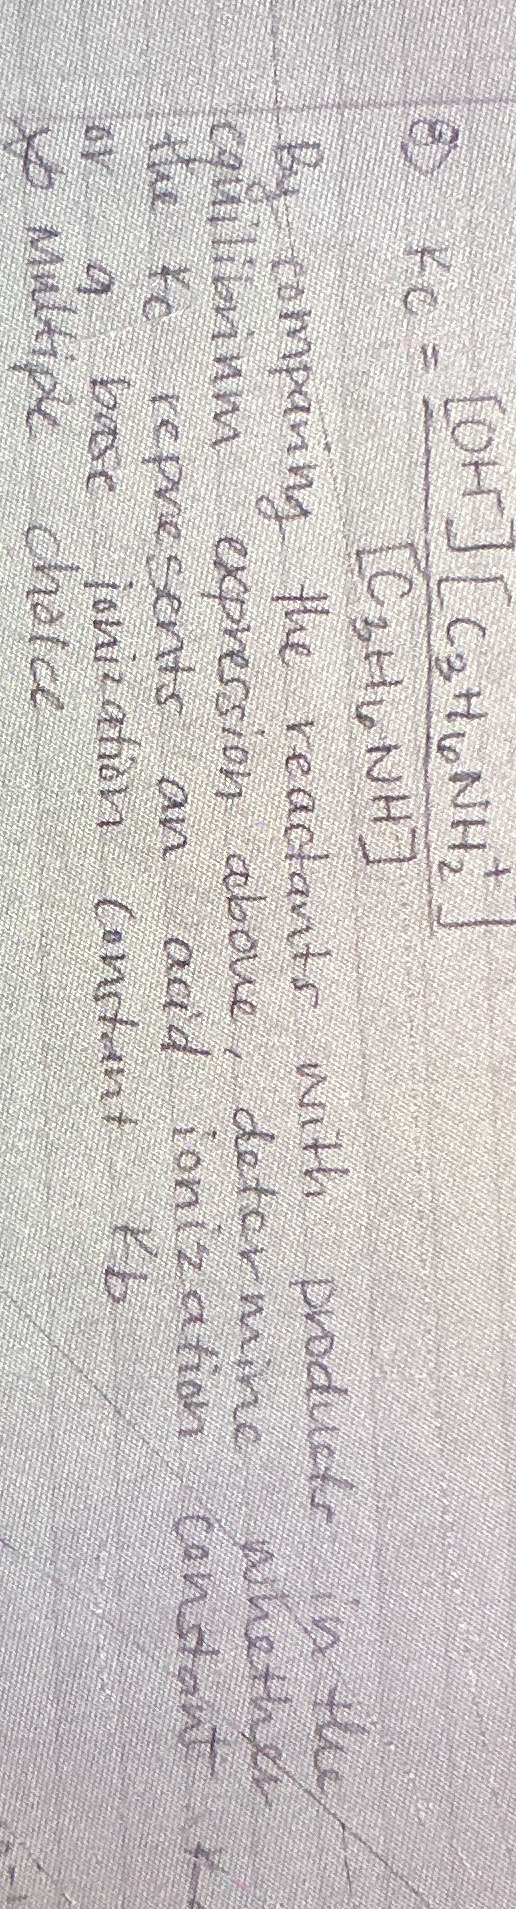 ② Kc = [OH⁻][C₃H₆NH₂⁺] / [C₃H₆NH]
By comparing the reactants with products in the
equilibrium expression above, determine whether
the Kc represents an acid ionization constant
or a base ionization constant Kb
multiple choice